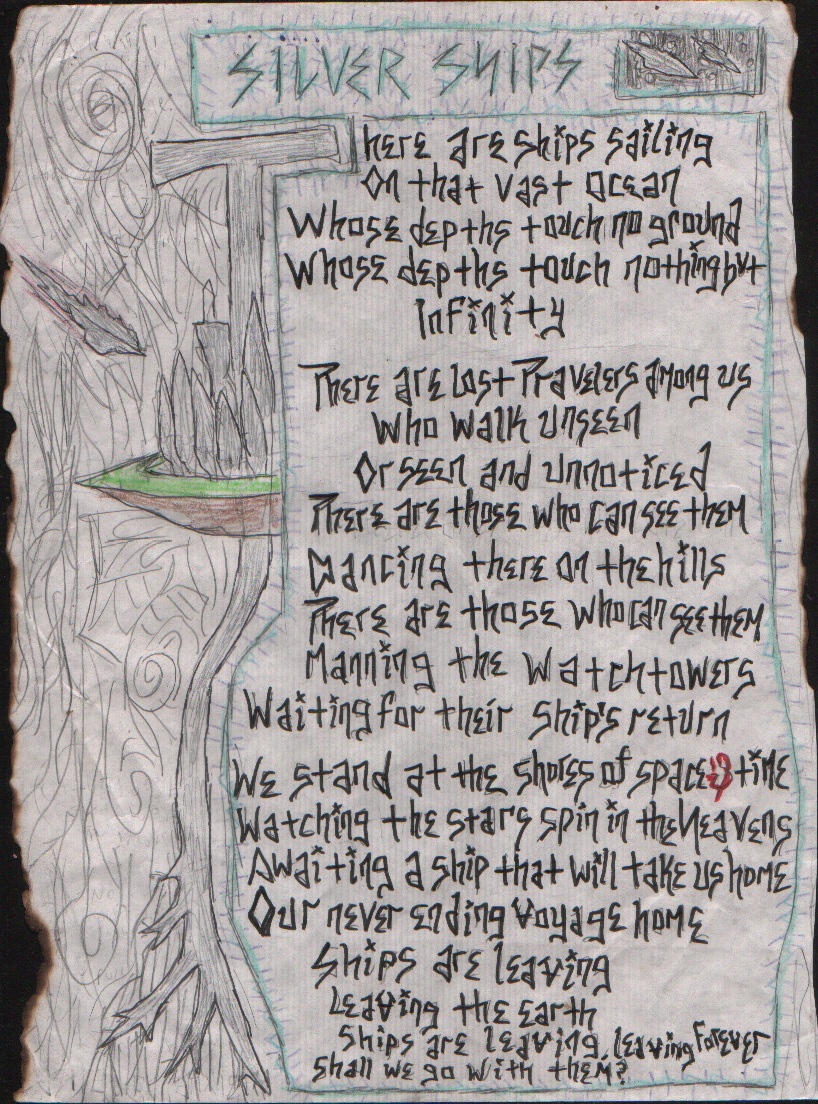 SILVER SHIPS
There are ships sailing
On that vast ocean
Whose depths touch no ground
Whose depths touch nothing but
infinity
There are lost Travelers among us
Who walk unseen
Or seen and unnoticed
There are those who can see them
Dancing there on the hills
There are those who can see them
Manning the Watchtowers
Waiting for their ship's return
We stand at the shores of space & time
Watching the stars spin in the Heavens
Awaiting a ship that will take us home
Our never ending voyage home
Ships are leaving
Leaving the Earth
Ships are leaving, leaving forever
Shall we go with them?